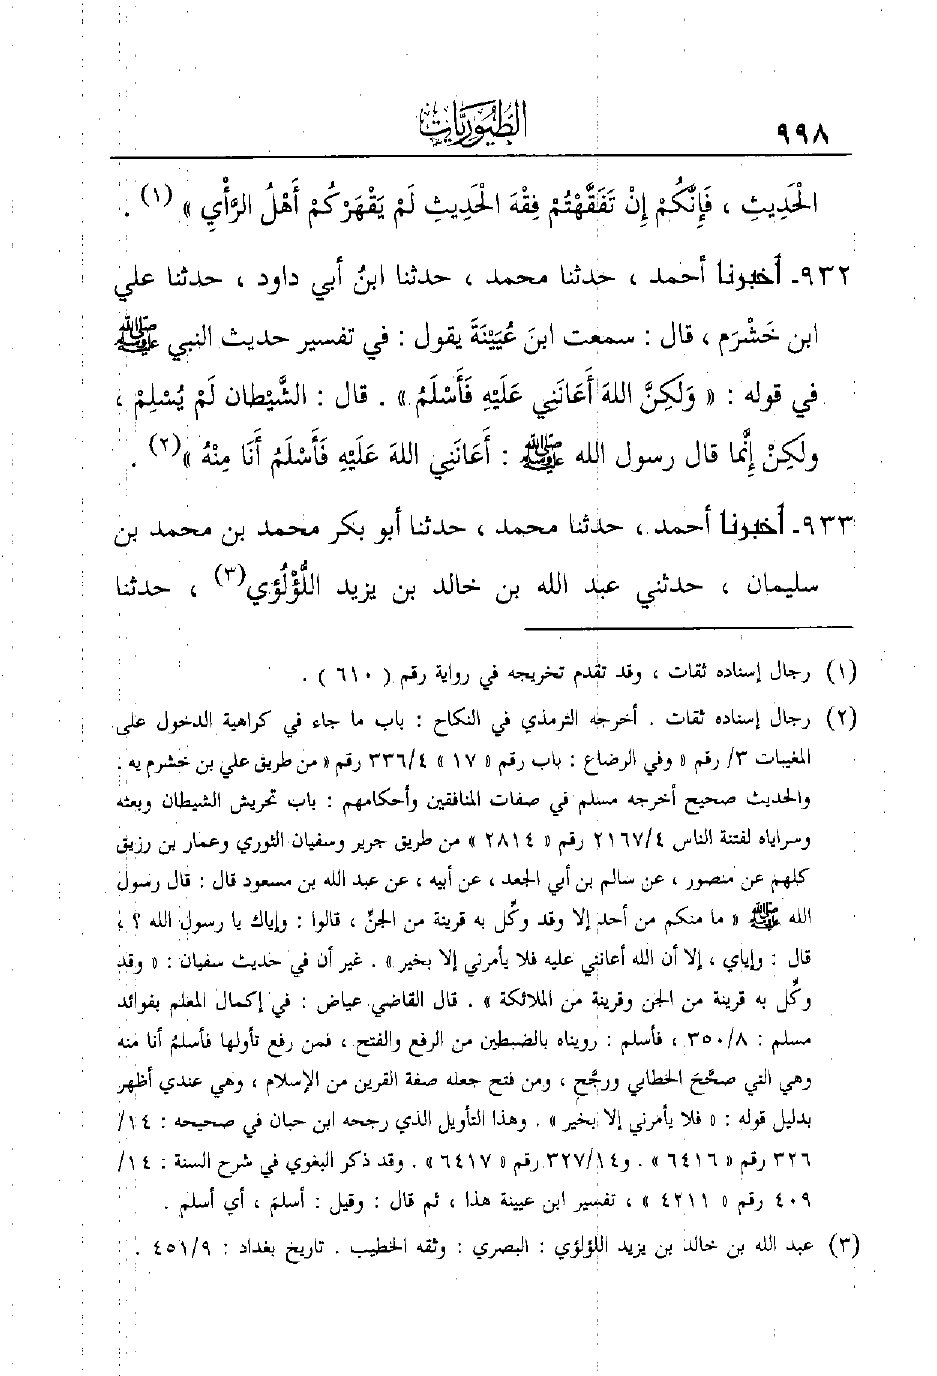 ٩٩٨
الطيوريات
الْحَدِيثِ ، فَإِنَّكُمْ إِنْ تَفَقَّهْتُمْ فِقْهَ الْحَدِيثِ لَمْ يَقْهَرْكُمْ أَهْلُ الرَّأْيِ » (١) .
٩٣٢ـ أخبرنا أحمد ، حدثنا محمد ، حدثنا ابنُ أبي داود ، حدثنا علي
ابن خَشْرَم ، قال : سمعت ابنَ عُيَيْنَةَ يقول : في تفسير حديث النبي ﷺ
في قوله : « وَلَكِنَّ اللهَ أَعَانَنِي عَلَيْهِ فَأَسْلَمُ » . قال : الشَّيْطان لَمْ يُسْلِمْ ،
ولَكِنْ إِنَّمَا قال رسول الله ﷺ : أَعَانَنِي اللهَ عَلَيْهِ فَأَسْلَمُ أَنَا مِنْهُ »(٢) .
٩٣٣ـ أخبرنا أحمد ، حدثنا محمد ، حدثنا أبو بكر محمد بن محمد بن
سليمان ، حدثني عبد الله بن خالد بن يزيد اللُّؤْلُؤي(٣) ، حدثنا
(١) رجال إسناده ثقات ، وقد تقدم تخريجه في رواية رقم ( ٦١٠ ) .
(٢) رجال إسناده ثقات . أخرجه الترمذي في النكاح : باب ما جاء في كراهية الدخول على
المغيبات ٣/ رقم « وفي الرضاع : باب رقم « ١٧ » ٣٣٦/٤ رقم « من طريق علي بن خشرم به .
والحديث صحيح أخرجه مسلم في صفات المنافقين وأحكامهم : باب تحريش الشيطان وبعثه
وسراياه لفتنة الناس ٢١٦٧/٤ رقم « ٢٨١٤ » من طريق جرير وسفيان الثوري وعمار بن رزيق
كلهم عن منصور ، عن سالم بن أبي الجعد ، عن أبيه ، عن عبد الله بن مسعود قال : قال رسول
الله ﷺ « ما منكم من أحد إلا وقد وكِّل به قرينة من الجنِّ ، قالوا : وإياك يا رسول الله ؟ ،
قال : وإياي ، إلا أن الله أعانني عليه فلا يأمرني إلا بخير » . غير أن في حديث سفيان : « وقد
وكِّل به قرينة من الجن وقرينة من الملائكة » . قال القاضي عياض : في إكمال المعلم بفوائد
مسلم : ٣٥٠/٨ ، فأسلم : رويناه بالضبطين من الرفع والفتح ، فمن رفع تأولها فأسلمُ أنا منه
وهي التي صحَّحَ الخطابي ورجَّح ، ومن فتح جعله صفة القرين من الإسلام ، وهي عندي أظهر
بدليل قوله : « فلا يأمرني إلا بخير » . وهذا التأويل الذي رجحه ابن حبان في صحيحه : ١٤/
٣٢٦ رقم « ٦٤١٦ » . و٣٢٧/١٤ رقم « ٦٤١٧ » . وقد ذكر البغوي في شرح السنة : ١٤/
٤٠٩ رقم « ٤٢١١ » ، تفسير ابن عيينة هذا ، ثم قال : وقيل : أسلم ، أي أسلم .
(٣) عبد الله بن خالد بن يزيد اللؤلؤي : البصري : وثقه الخطيب . تاريخ بغداد : ٤٥١/٩ .